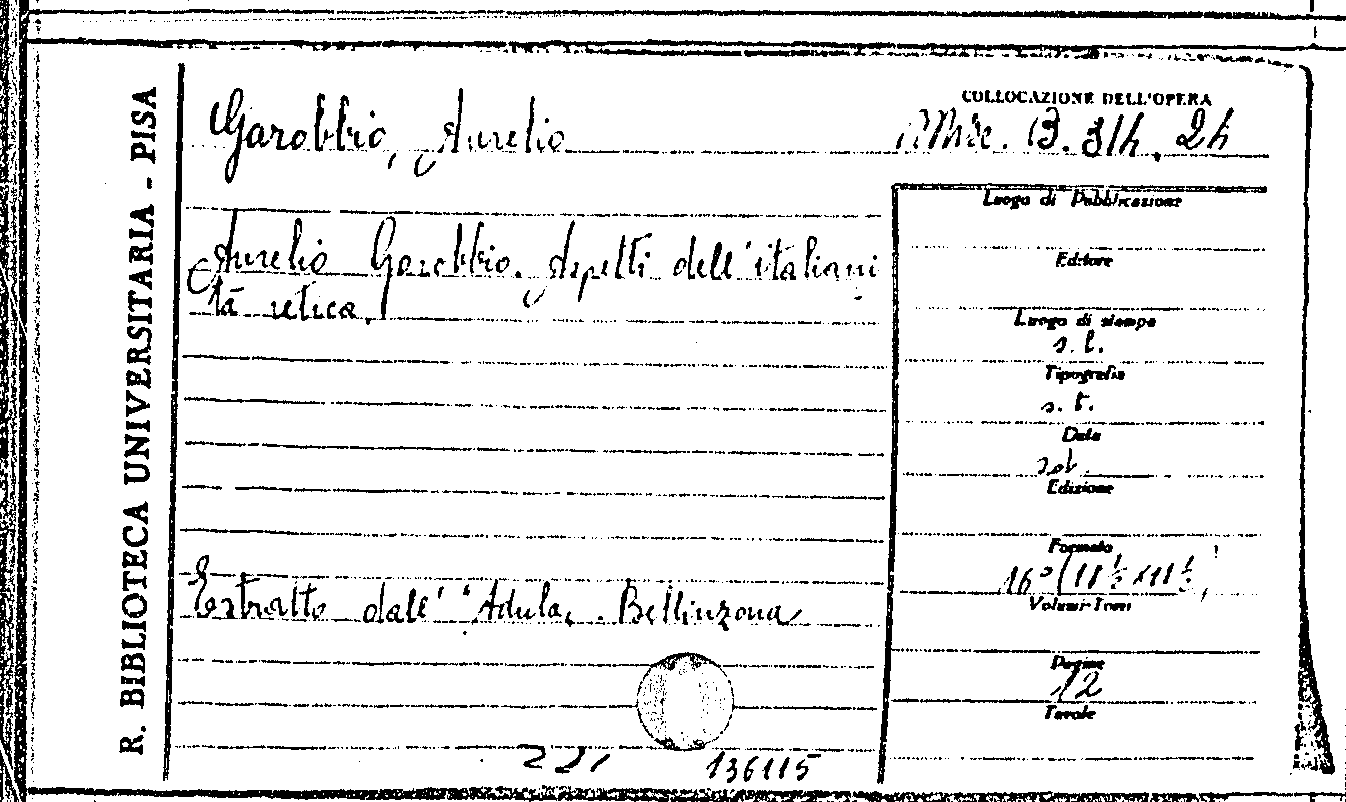 R. BIBLIOTECA UNIVERSITARIA - PISA
Garobbio, Aurelio
COLLOCAZIONE DELL'OPERA
Misc. B. 314. 24
Aurelio Garobbio. Aspetti dell'italiani
tà retica.
Luogo di Pubblicazione
Editore
Luogo di stampa
s. l.
Tipografia
s. t.
Data
Edizione
Formato
16°
Volumi-Tomi
Pagine
12
Tavole
Estratto dall' "Adula, . Bellinzona
221
136115